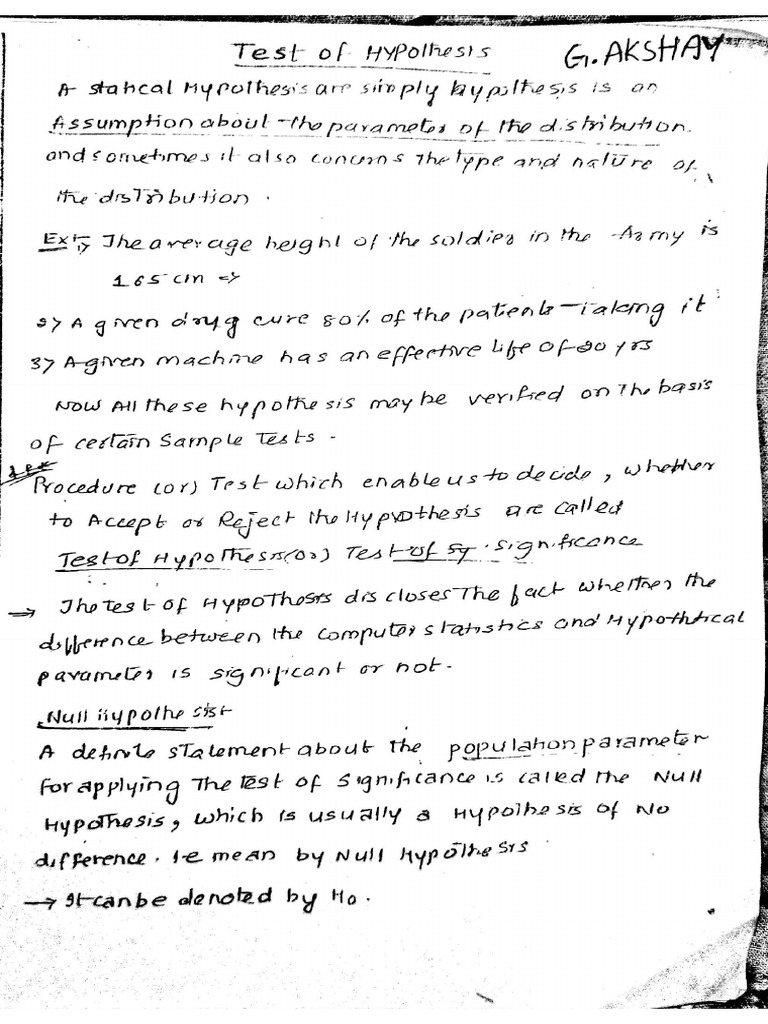 Test of HYPothesis
G. AKSHAY
A Statical Hypothesis are simply hypothesis is an
Assumption about the parameter of the distribution.
and sometimes it also concerns the type and nature of
the distribution.
Ex:- 1) The average height of the soldier in the Army is
165 cm =>
2) A given drug cure 80% of the patients taking it
3) A given machine has an effective life of 20 yrs
Now All these hypothesis may be verified on the basis
of certain Sample Tests.
Procedure (or) Test which enable us to decide, whether
to Accept or Reject the Hypothesis are called
Test of Hypothesis (or) Test of significance
→ The test of Hypothesis discloses The fact whether the
difference between the computer statistics and Hypothtical
parameter is significant or not.
Null Hypothesis:
A definite statement about the population parameter
for applying The test of significance is called the Null
Hypothesis, which is usually a Hypothesis of No
difference. I-e mean by Null Hypothesis
→ It can be denoted by H0.